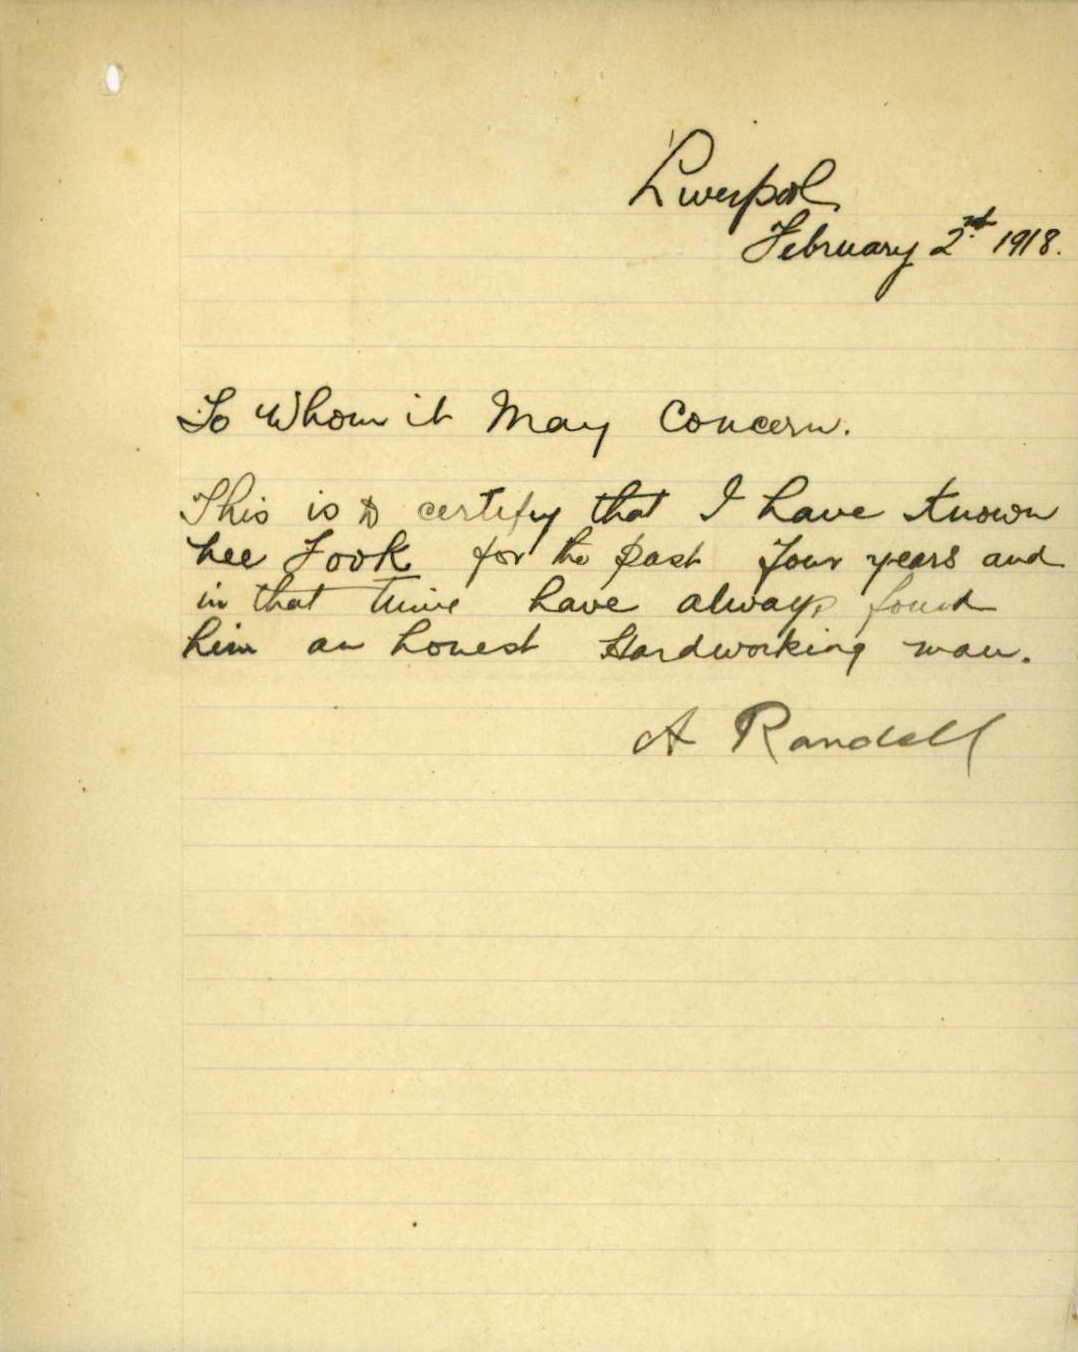 Liverpool
February 2nd 1918.
To Whom it May Concern.
This is to certify that I have known
Lee Fook for the past four years and
in that time have always found
him an honest Hardworking man.
A Randell